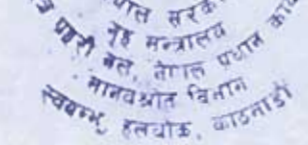 पाल सरक
गृह मन्त्रालय
त्र प्रहरी बल, नेपाल प्रधान का
मानवश्रोत विभाग
स्वयम्भू, हलचोक, काठमाडौं